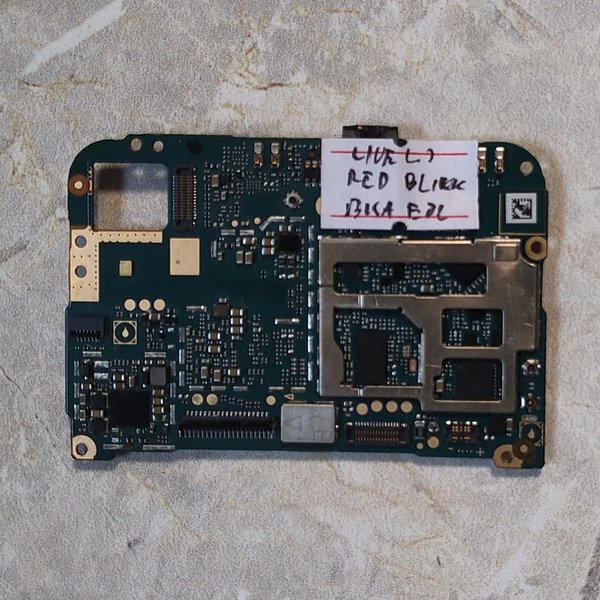 LIVE L1
RED BLINK
BISA EDL